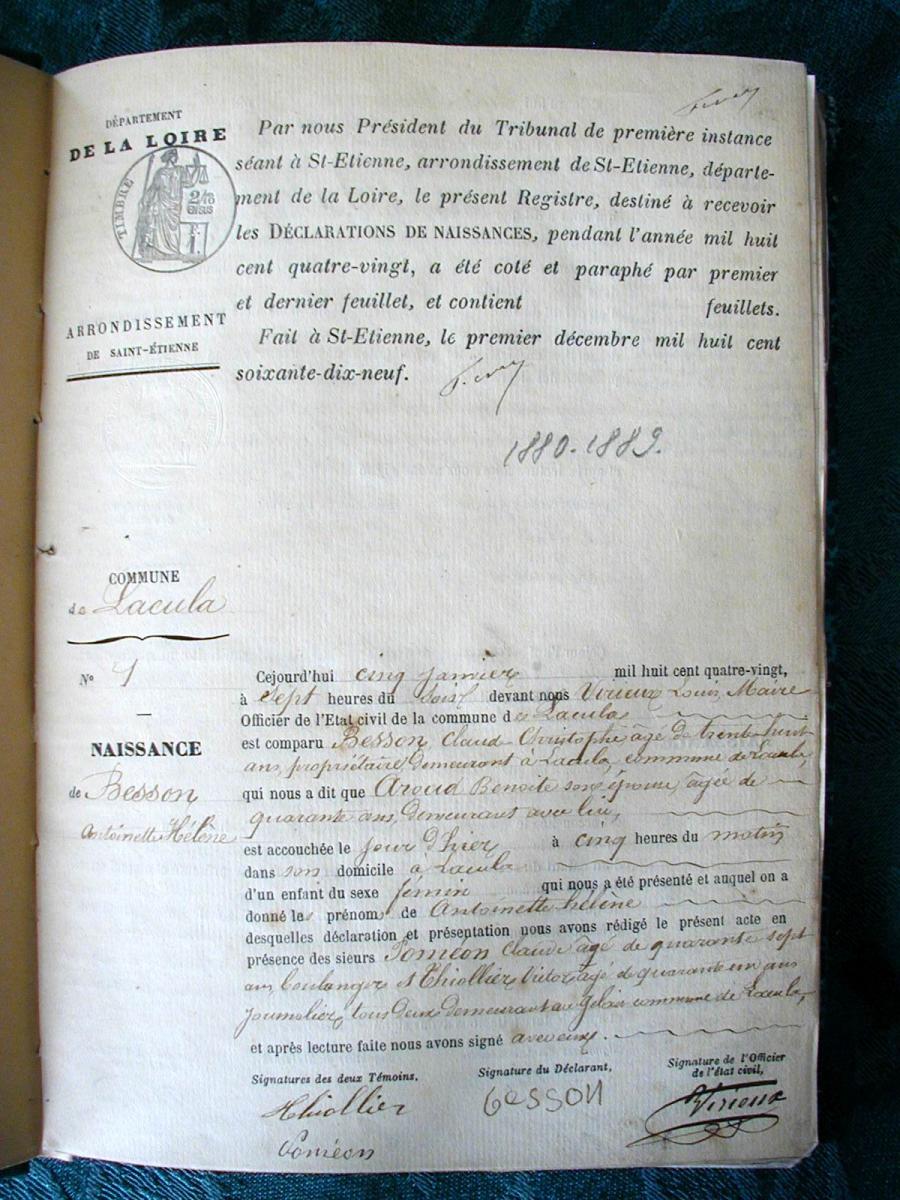 DÉPARTEMENT
DE LA LOIRE
TIMBRE
Par nous Président du Tribunal de première instance
séant à St-Etienne, arrondissement de St-Etienne, départe-
ment de la Loire, le présent Registre, destiné à recevoir
les DÉCLARATIONS DE NAISSANCES, pendant l'année mil huit
cent quatre-vingt, a été coté et paraphé par premier
et dernier feuillet, et contient feuillets.
Fait à St-Etienne, le premier décembre mil huit cent
soixante-dix-neuf.
ARRONDISSEMENT
DE SAINT-ÉTIENNE
1880-1889.
COMMUNE
de Lacula
N° 1
NAISSANCE
de Besson
Antoinette Hélène
Cejourd'hui cinq janvier mil huit cent quatre-vingt,
à sept heures du soir devant nous Virieux Louis, Maire
Officier de l'Etat civil de la commune de Lacula
est comparu Besson, Claude Christophe âgé de trente huit
ans, propriétaire demeurant à Lacula, commune de Lacula,
qui nous a dit que Aroud Benoite son épouse, âgée de
quarante ans, demeurant avec lui,
est accouchée le jour d'hier à cinq heures du matin
dans son domicile à Lacula
d'un enfant du sexe fémin qui nous a été présenté et auquel on a
donné les prénoms de Antoinette hélène
desquelles déclaration et présentation nous avons rédigé le présent acte en
présence des sieurs Poméon Claude âgé de quarante sept
ans, boulanger et Thiollier Victor âgé de quarante un ans
journalier, tous deux demeurant au commune de Lacula,
et après lecture faite nous avons signé avec eux.
Signatures des deux Témoins,
Signature du Déclarant,
Signature de l'Officier
de l'état civil,
Thiollier
Besson
Virieux
Poméon